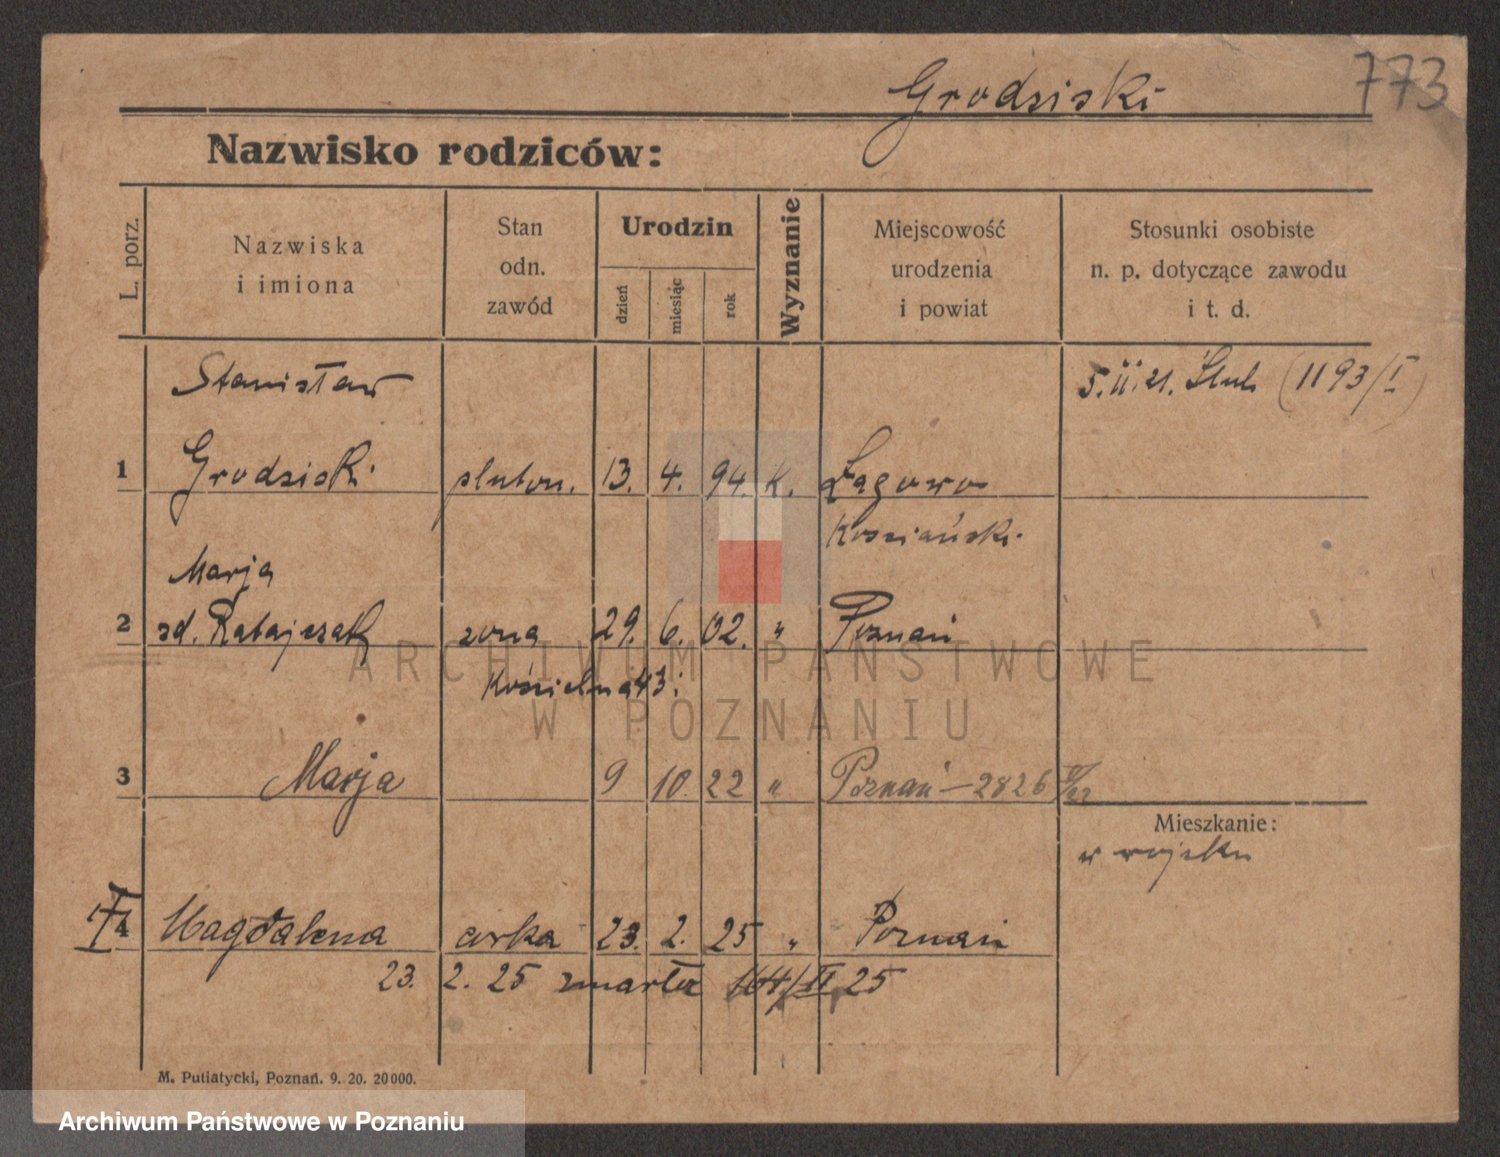 Grodziski 773
Nazwisko rodziców:
L. porz.
Nazwiska
i imiona
Stan
odn.
zawód
Urodzin
dzień
miesiąc
rok
Wyznanie
Miejscowość
urodzenia
i powiat
Stosunki osobiste
n. p. dotyczące zawodu
i t. d.
Stanisław
5. II. 21. Ślub (1193/I)
1 Grodziski pluton. 13. 4. 94. K. Łagowo
Kościański
Marja
2 zd. Ratajczak żona 29. 6. 02. " Poznań
Kościelna 43
3 Marja 9 10 22 " Poznań – 2826
Mieszkanie:
w wojsku
4 Magdalena córka 23. 2. 25 " Poznań
23. 2. 25 zmarła 164/II 25
M. Putiatycki, Poznań. 9. 20. 20000.
ARCHIWUM PAŃSTWOWE
W POZNANIU
Archiwum Państwowe w Poznaniu